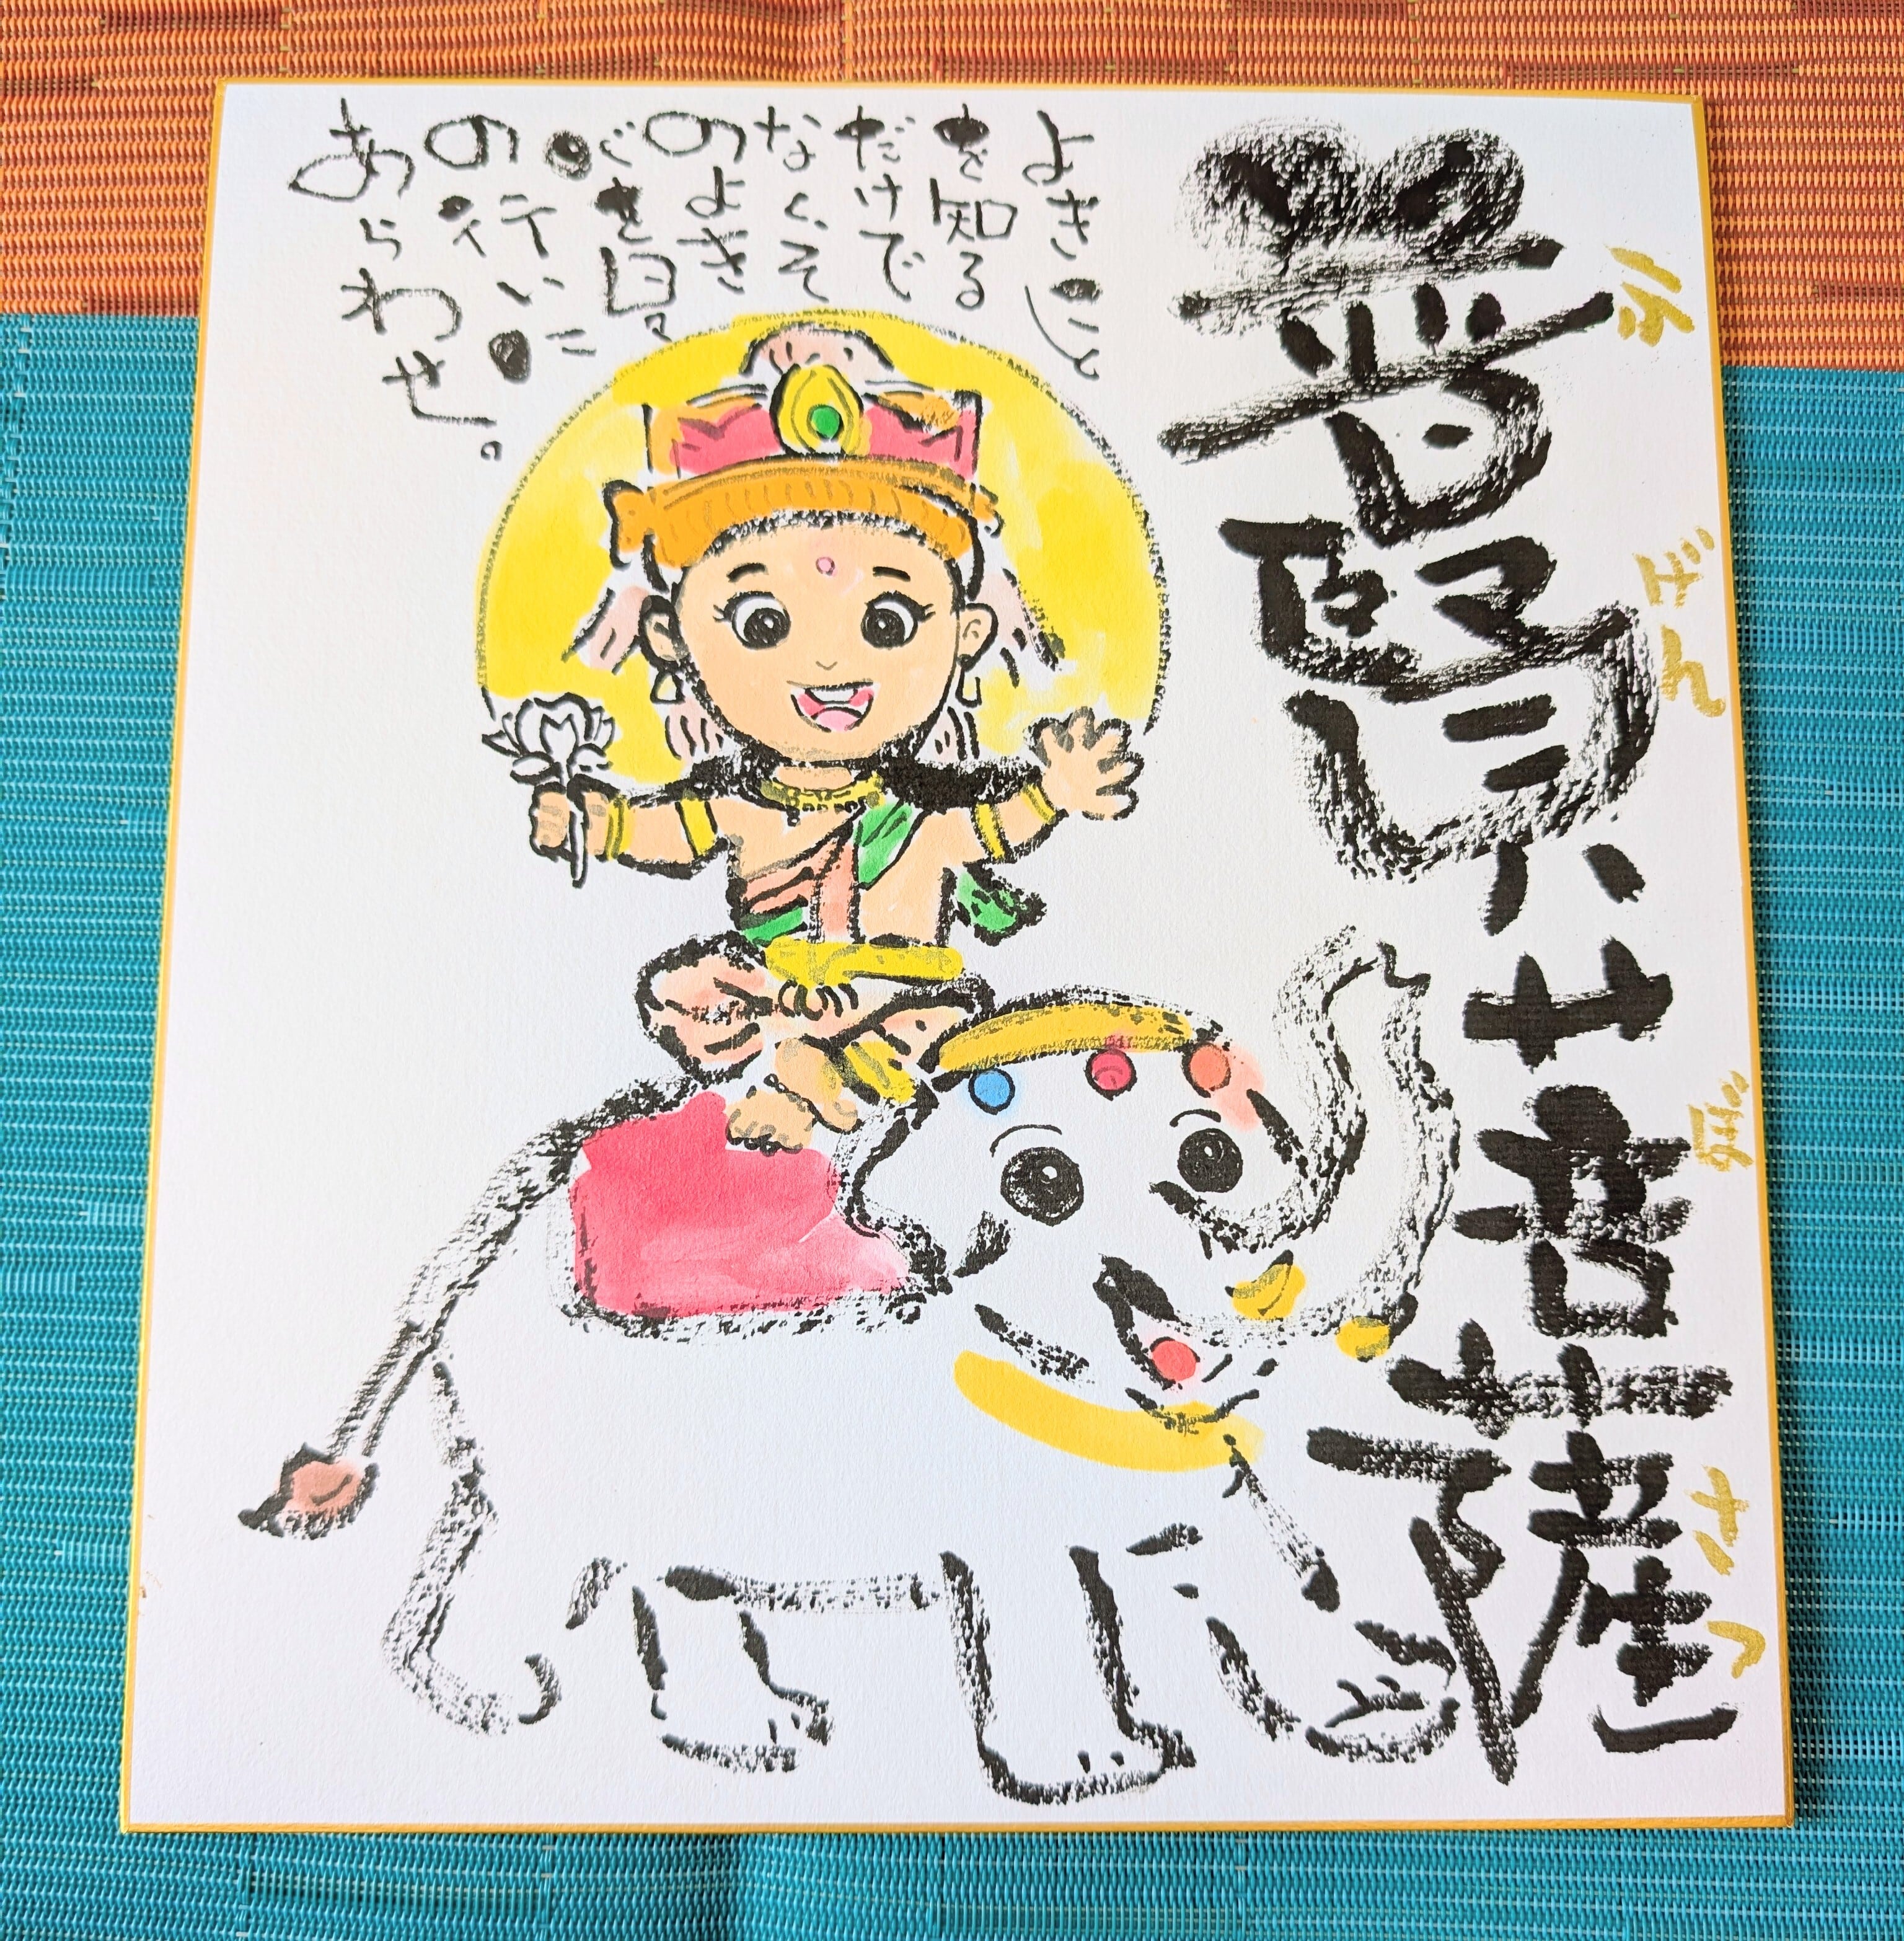 普賢菩薩
ふ
げん
ぼ
さつ
よきこと
を知る
だけで
なく、そ
のよき
を日々
の行いに
あらわせ。